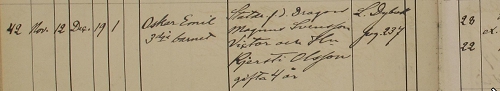 42 Nov. 12 Dec. 19 1 Oskar Emil
3dje barnet
Dragon
Magnus Svensson
Victor och Hu
Kjersti Olsson
gifta 4 år
L. Dybeck
pag. 237
23
22